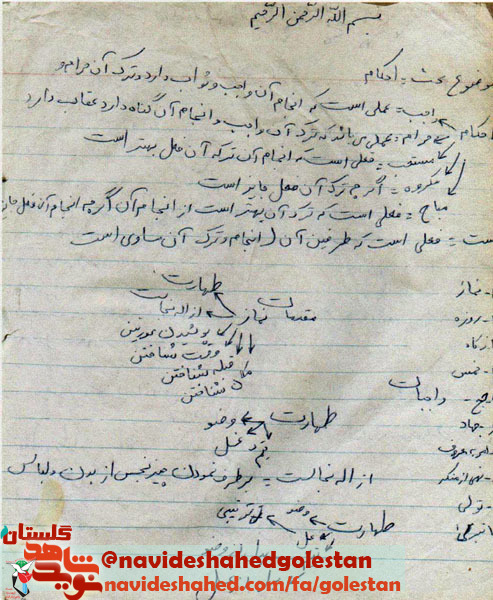 بسم الله الرحمن الرحیم
موضوع بحث = احکام
واجب = عملی است که انجام آن واجب و ثواب دارد و ترک آن حرام و
احکام
حرام = عملی می باشد که ترک آن واجب و انجام آن گناه دارد عقاب دارد
مستحب = فعلی است که انجام آن ترک آن فعل بهتر است
مکروه = اگر چه ترک آن فعل جایز است
مباح = فعلی است که ترک آن بهتر است از انجام آن اگر چه انجام آن فعل جایز
است = فعلی است که طرفین آن (انجام و ترک آن مساوی است
مقدمات نماز
طهارت
ازاله نجاست
پوشیدن عورتین
وقت شناختن
قبله شناختن
مکان شناختن
نماز
روزه
زکاه
خمس
حج
جهاد
امر به معروف
نهی از منکر
تولی
تبری
واجبات
طهارت
وضو
غسل
تیمم
ازاله نجاست = برطرف نمودن چیز نجس از بدن و لباس
طهارت
وضو
غسل
ترتیبی
نوید شاهد گلستان
@navideshahedgolestan
navideshahed.com/fa/golestan